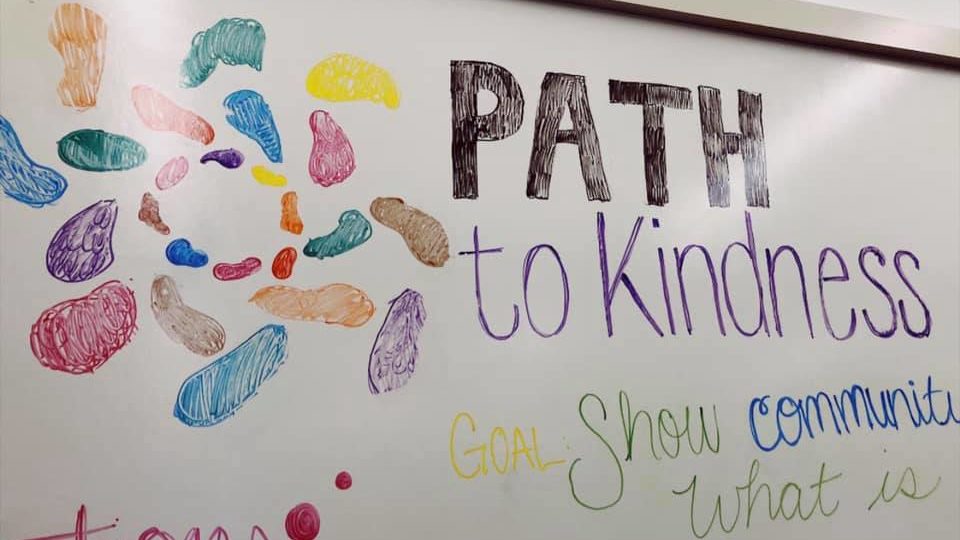 PATH
to Kindness
GOAL: Show communit
what is